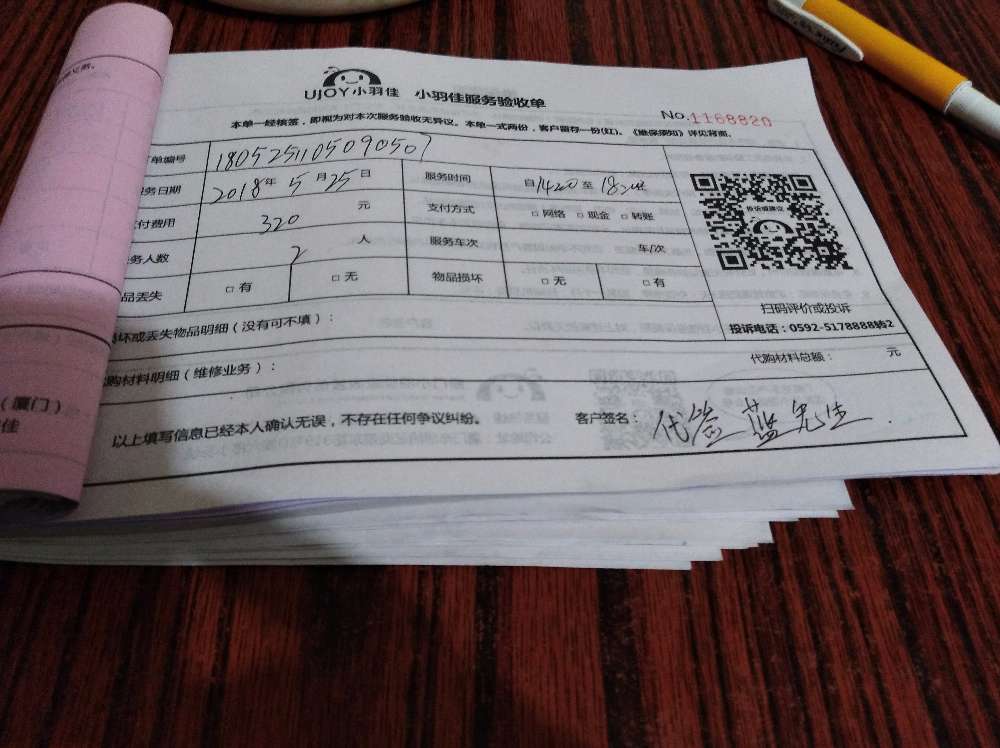 UJOY小羽佳 小羽佳服务验收单
No.1168820
本单一经核签，即视为对本次服务验收无异议。本单一式两份，客户留存一份(红)。《维保须知》详见背面。
单编号 1805251105090507
务日期 2018年5月25日 服务时间 自1420至1820
付费用 320 元 支付方式 □ 网络 □ 现金 □ 转账
务人数 2 人 服务车次 车/次
品丢失 □ 有 □ 无 物品损坏 □ 无 □ 有
投诉或建议
扫码评价或投诉
投诉电话：0592-5178888转2
坏或丢失物品明细（没有可不填）：
购材料明细（维修业务）： 代购材料总额： 元
以上填写信息已经本人确认无误，不存在任何争议纠纷。 客户签名： 代签 蓝先生
（厦门）
佳